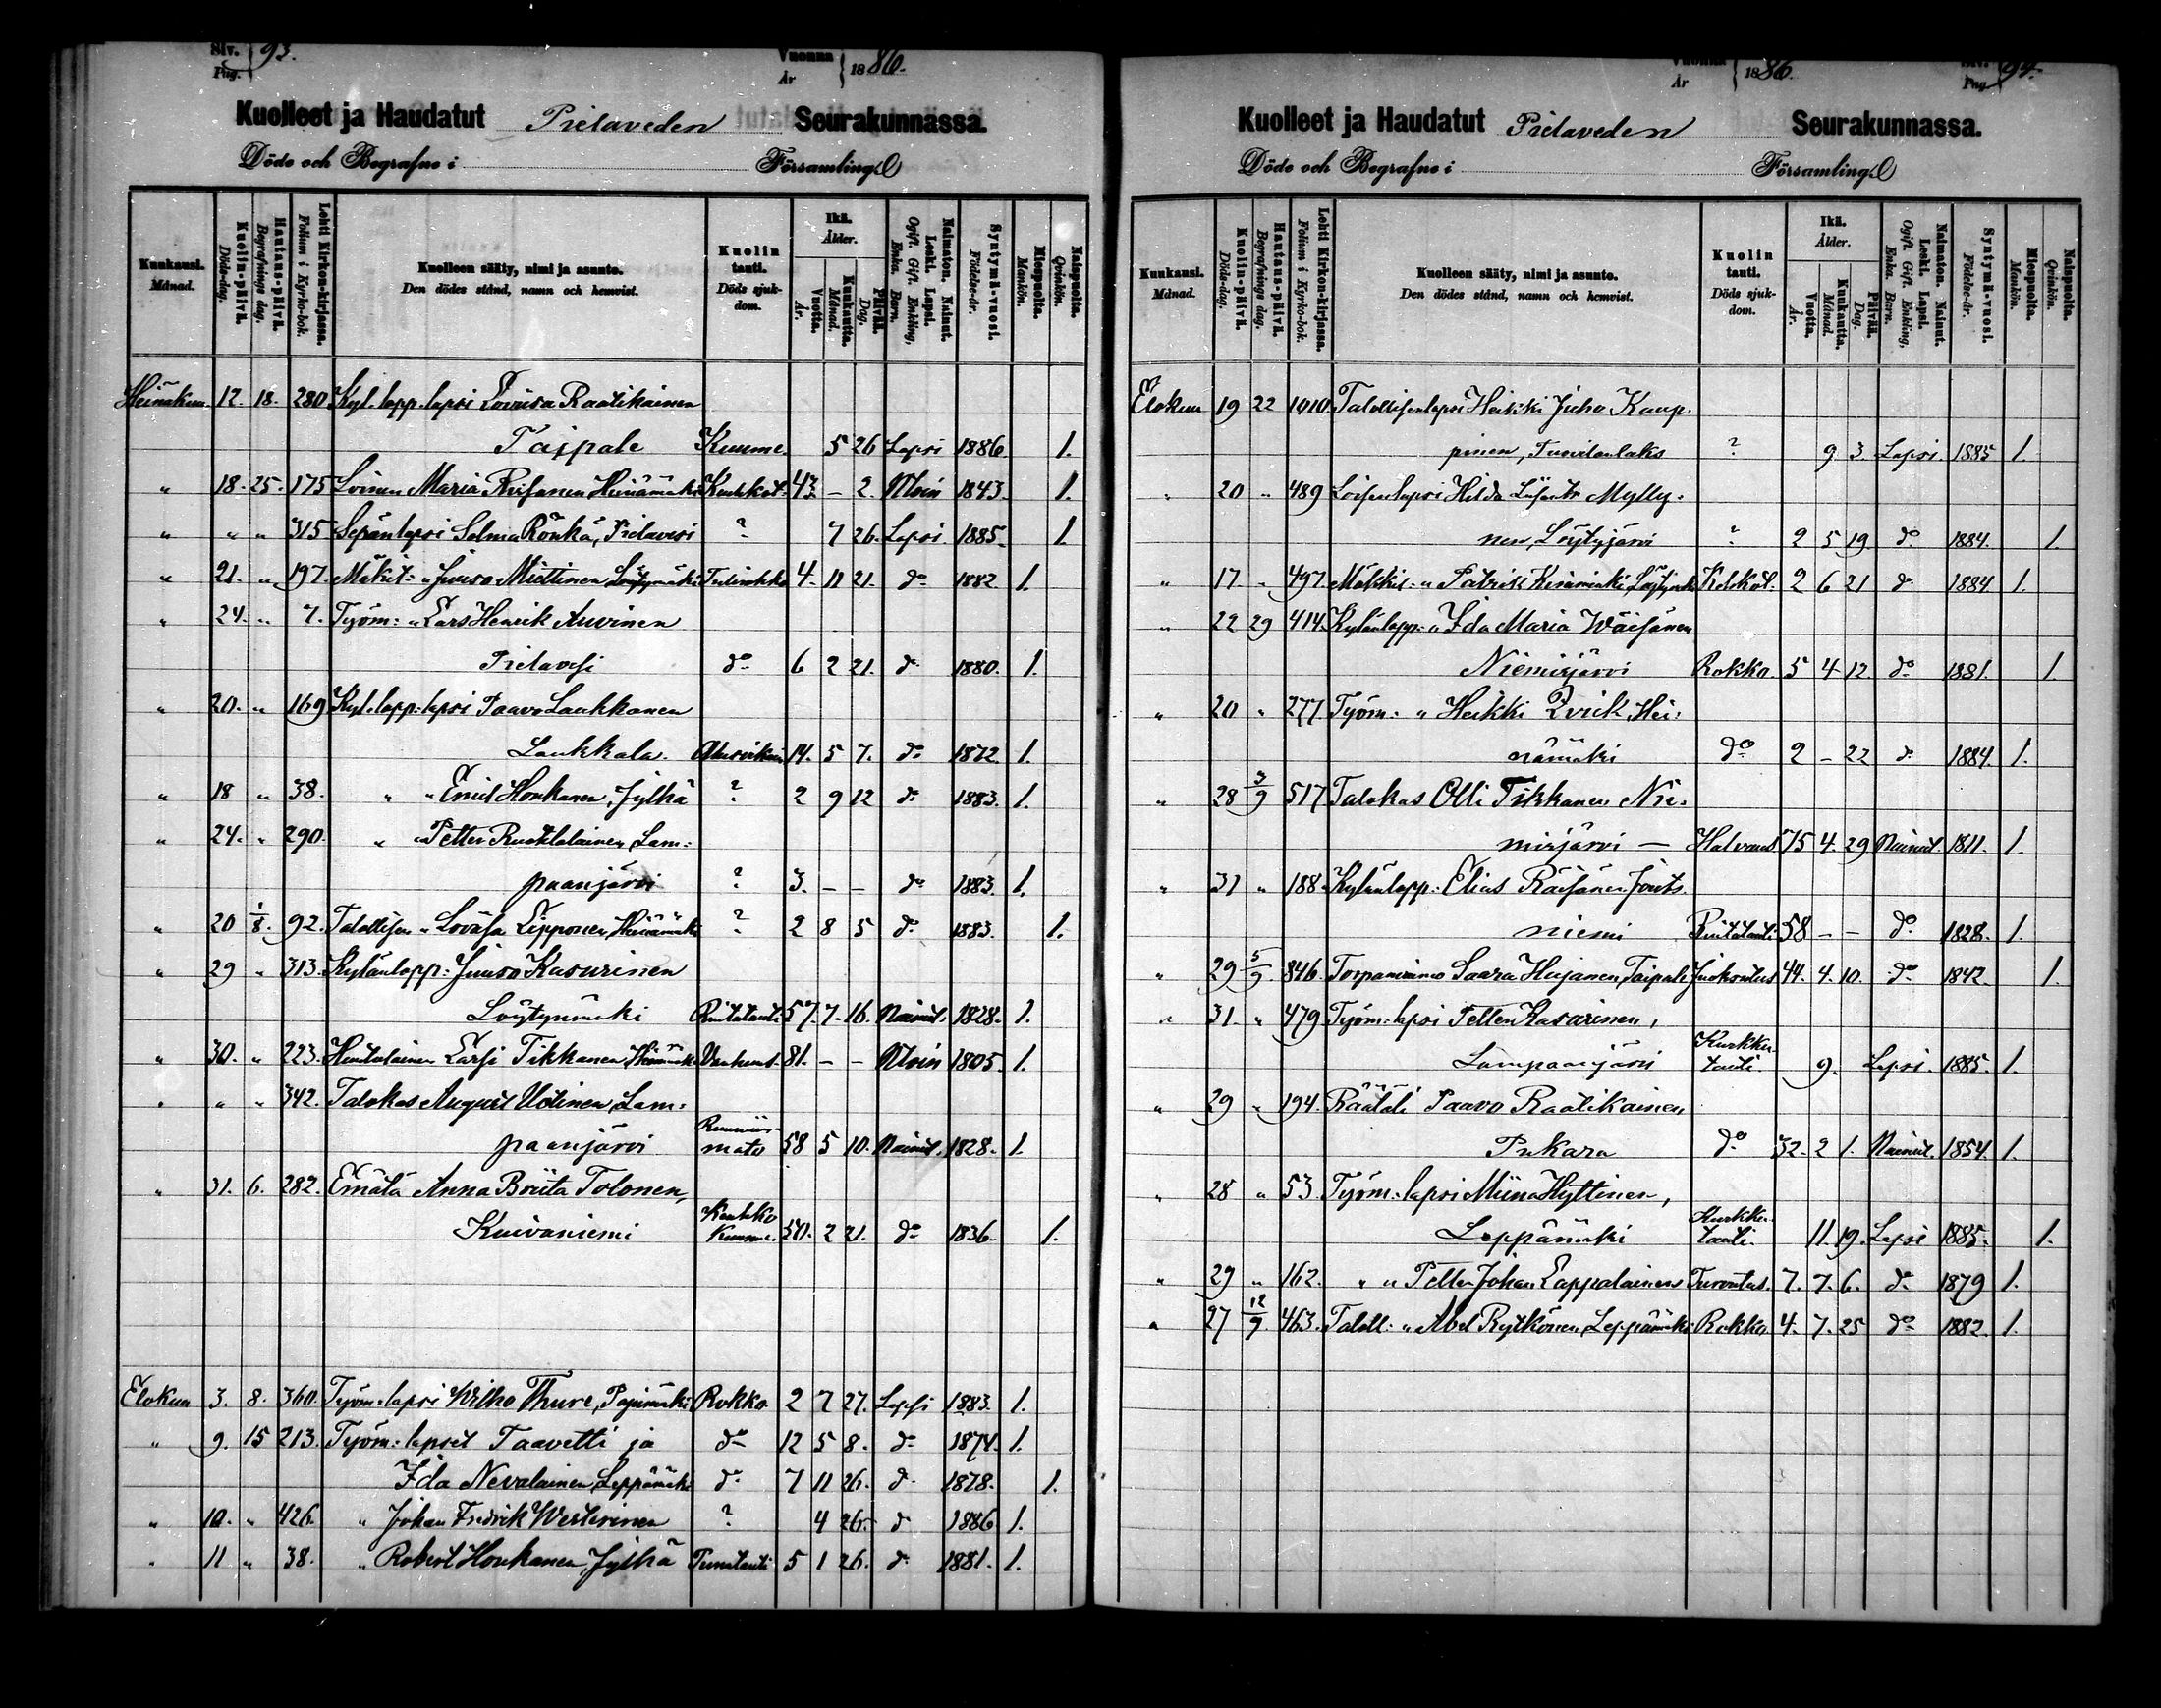 Siv. Pag. 93. Vuonna År 1886.
Kuolleet ja Haudatut Pielaveden Seurakunnassa.
Döde och Begrafne i Församling.
Kuukausi. Månad. Kuolin-päivä. Döds-dag. Hautaus-päivä. Begrafnings dag. Lehti Kirkon-kirjassa. Folium i Kyrko-bok. Kuolleen sääty, nimi ja asunto. Den dödes stånd, namn och hemvist. Kuolin tauti. Döds sjukdom. Ikä. Ålder. Vuotta. År. Kuukautta. Månad. Päivää. Dag. Naimaton. Nainut. Leski. Lapsi. Ogift. Gift. Enkling, Enka. Barn. Syntymä-vuosi. Födelse-år. Miespuolta. Mankön. Naispuolta. Qvinkön.
Heinäkuu 12. 18. 280 Kyl. lapp. lapsi Loviisa Raatikainen
Taipale Kuume. 5 26 Lapsi 1886. 1.
" 18. 25. 175 Loinen Maria Heinämäki 43 – 2. 1843. 1.
" " " 315 Sepänlapsi Selma Rönkä, Pielavesi ? 7 26. Lapsi. 1885. 1.
" 21. " 197. Mäkit: " Juuso Miettinen Löytynmäki Tulirokko 4. 11 21. do 1882. 1.
" 24. " 7. Työm: " Lars Henrik Auvinen
Pielavesi do 6 2 21. do 1880. 1.
" 20. " 169 Kyl. lapp: lapsi Paavo Laukkanen
Laukkala. 14. 5 7. do 1872. 1.
" 18 " 38. " " Emil Honkanen, Jylhä ? 2 9 12 do 1883. 1.
" 24. " 290. " " Petter Ruotsalainen, Lam:
paanjärvi ? 3. – – do 1883. 1.
" 20 1/8. 92. Talollisen " Lovisa Lipponen, Heinämäki ? 2 8 5 do 1883. 1.
" 29 " 313. Kylänlapp: Juuso Kasurinen
Löytynmäki Rintatauti 57. 7. 16. Nainut. 1828. 1.
" 30. " 223. Lassi Tikkanen Heinämäki Vanhuus. 81. – – 1805. 1.
" " " 342. Talokas August Utinen, Lam:
paanjärvi mato 58 5 10. Nainut. 1828. 1.
" 31. 6. 282. Emäntä Anna Briita Tolonen,
Kuivaniemi Keuhko Kuume. 50. 2 21. do 1836. 1.
Elokuu 3. 8. 360. Työm: lapsi Wilho Thure, Pajumäki Rokko 2 7 27. Lapsi 1883. 1.
" 9. 15 213. Työm: lapset Taavetti ja do 12 5 8. do 1874. 1.
Ida Nevalainen, Leppämäki do 7 11 26. do 1878. 1.
" 10. " 426. " Johan Fredrik Westerinen ? 4 26. do 1886 1.
" 11 " 38. " Robert Honkanen, Jylhä 5 1 26. do 1881. 1.
Vuonna År 1886. Siv. Pag. 94.
Kuolleet ja Haudatut Pielaveden Seurakunnassa.
Döde och Begrafne i Församling.
Kuukausi. Månad. Kuolin-päivä. Döds-dag. Hautaus-päivä. Begrafnings dag. Lehti Kirkon-kirjassa. Folium i Kyrko-bok. Kuolleen sääty, nimi ja asunto. Den dödes stånd, namn och hemvist. Kuolin tauti. Döds sjukdom. Ikä. Ålder. Vuotta. År. Kuukautta. Månad. Päivää. Dag. Naimaton. Nainut. Leski. Lapsi. Ogift. Gift. Enkling, Enka. Barn. Syntymä-vuosi. Födelse-år. Miespuolta. Mankön. Naispuolta. Qvinkön.
Elokuu 19 22 1010. Talollisenlapsi Heikki Juho Kaup:
pinen, ? 9 3. Lapsi. 1885 1.
" 20 " 489 Loisenlapsi Hilda Mylly:
nen, Löytyjärvi ? 2 5 19 do 1884. 1.
" 17 " 497. Mäkkit: " Patrik 2 6 21 do 1884 1.
" 22 29 414. Kylänlapp: " Ida Maria Wäisänen
Niemisjärvi Rokko. 5 4 12. do 1881. 1.
" 20 " 277. Työm: " Heikki Hei:
nämäki do 2 – 22 do 1884. 1.
" 28 3/9 517 Talokas Olli Tikkanen, Nie:
misjärvi — Halvaus 75 4. 29 Nainut. 1811. 1.
" 31 " 188. Kylänlapp: Elias Räisänen Jouts:
niemi Rintatauti 58 – – do 1828. 1.
" 29 5/9. 846. Saara Hujanen, Taipale Juoksutus 44. 4. 10. do 1842. 1.
" 31. " 479 Työm: lapsi Petter Kasarinen,
Lampaanjärvi Kurkku tauti. 9. Lapsi. 1885. 1.
" 29 " 194. Räätäli Paavo Raatikainen
Pukara do 32. 2 1. Nainut. 1854. 1.
" 28 " 53. Työm: lapsi Miina Hyttinen,
Leppämäki Kurkku tauti. 11. 19. Lapsi 1885. 1.
" 29 " 162. " " Petter Johan Lappalainen Turvotus. 7. 7. 6. do 1879 1.
" 27 12/9. 463. Taloll: " Abel Rytkönen, Leppämäki Rokko 4. 7. 25 do 1882. 1.